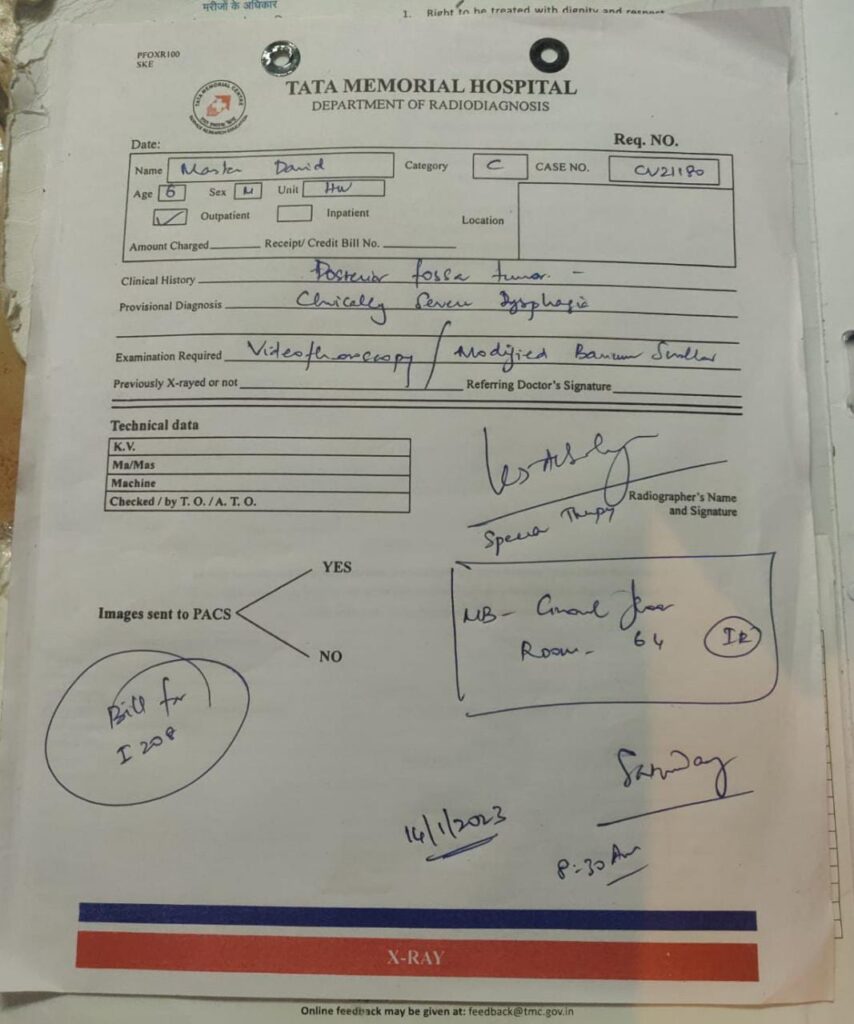 मरीजों के अधिकार
1. Right to be treated with dignity and respect
PFOXR100
SKE
TATA MEMORIAL HOSPITAL
DEPARTMENT OF RADIODIAGNOSIS
Date:
Req. NO.
Name Master David Category C CASE NO. CN21180
Age 6 Sex M Unit HW
✓ Outpatient Inpatient Location
Amount Charged Receipt/ Credit Bill No.
Clinical History Posterior fossa tumor. -
Provisional Diagnosis Clinically Severe Dysphagia
Examination Required Videofluoroscopy / Modified Barium Swallow
Previously X-rayed or not Referring Doctor's Signature
Technical data
K.V.
Ma/Mas
Machine
Checked / by T. O. / A. T. O.
Radiographer's Name
and Signature
Therapy
YES
Images sent to PACS
NO
MB - Ground floor
Room - 64 IR
Bill for
I 208
Saturday
14/1/2023
8:30 Am
X-RAY
Online feedback may be given at: feedback@tmc.gov.in